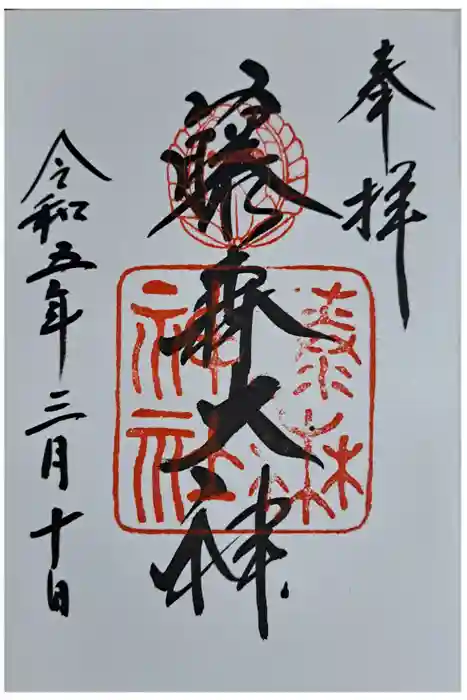 奉拝
藤森大神
神社
令和五年三月十日